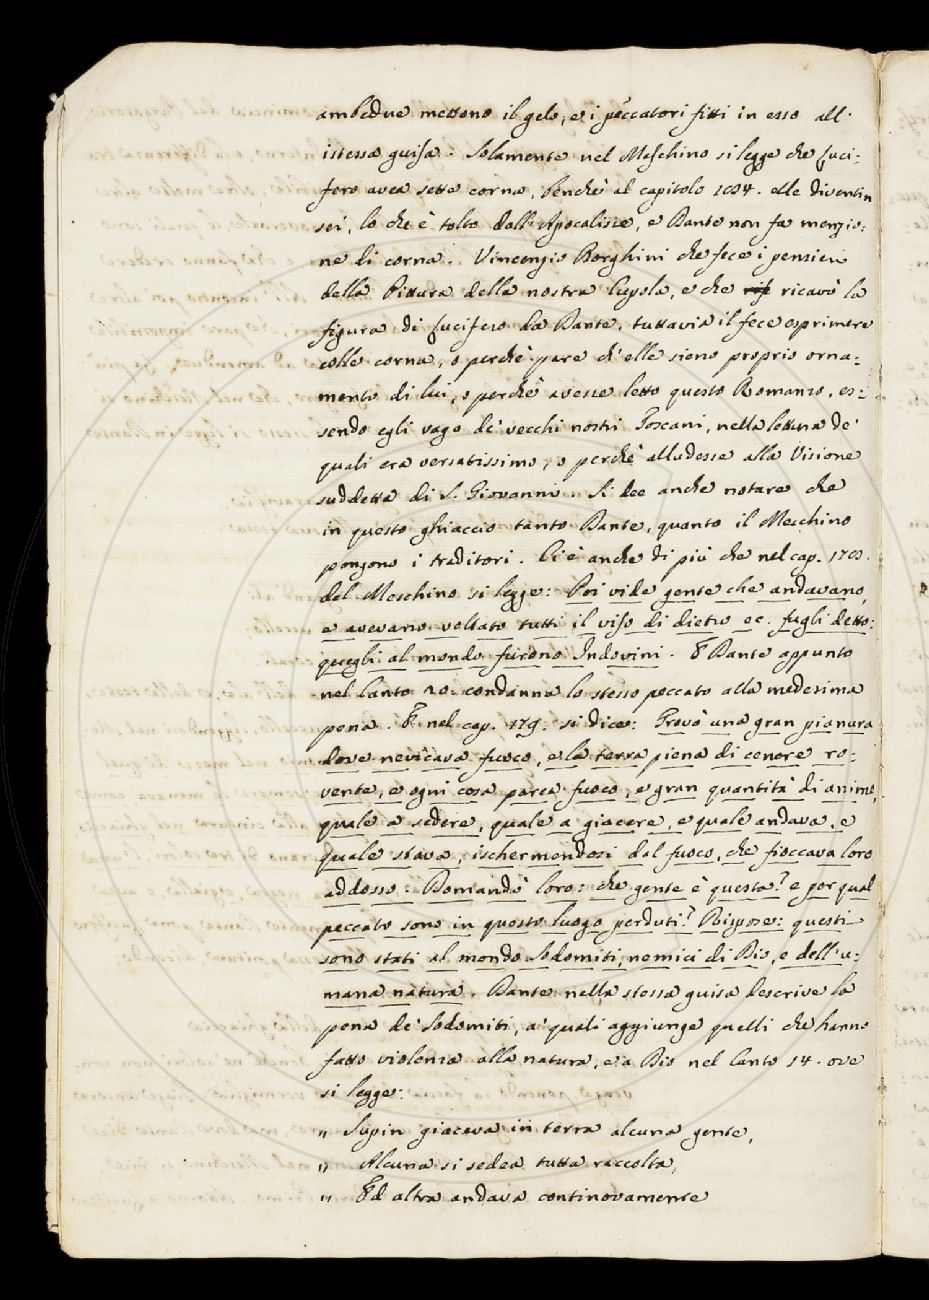 ambedue mettono il gelo, e i peccatori fitti in esso all'
istessa guisa. Solamente nel Meschino si legge che Luci:
fero avea sette corna, benchè al capitolo 1084. elle diventin
sei, lo che è tolto dall'Apocalisse, e Dante non fa menzio:
ne di corna. Vincenzio Borghini che fece i pensieri
della Pittura della nostra Cupola, e che ricavò la
figura di Lucifero da Dante, tuttavia il fece esprimere
colle corna, o perchè pare ch'elle sieno proprio orna:
mento di lui, o perchè avesse letto questo Romanzo, es:
sendo egli vago de' vecchi nostri Toscani, nella lettura de'
quali era versatissimo, o perchè alludesse alla Visione
suddetta di S. Giovanni. Si dee anche notare che
in questo ghiaccio tanto Dante, quanto il Meschino
pongono i traditori. Ci è anche di più che nel cap.
del Meschino si legge: Poi vide gente che andavano,
e avevano voltato tutti il viso di dietro ec. fugli detto:
quegli al mondo furono Indovini. E Dante appunto
nel Canto 20. condanna lo stesso peccato alla medesima
pena. E nel cap. 179. si dice: Trovò una gran pianura
dove nevicava fuoco, e la terra piena di cenere ro:
vente, e ogni cosa parea fuoco, e gran quantità di anime,
quale a sedere, quale a giacere, e quale andava, e
quale stava, ischermendosi dal fuoco, che fioccava loro
addosso: Domandò loro: che gente è questa? e por qual
peccato sono in questo luogo perduti? Rispose: questi
sono stati al mondo Sodomiti, nemici di Dio, e dell'u:
mana natura. Dante nella stessa guisa descrive la
pena de' Sodomiti, a' quali aggiunge quelli che hanno
fatto violenza alla natura, e a Dio nel Canto 14. ove
si legge:
" Supin giaceva in terra alcuna gente,
" Alcuna si sedea tutta raccolta,
" Ed altra andava continovamente